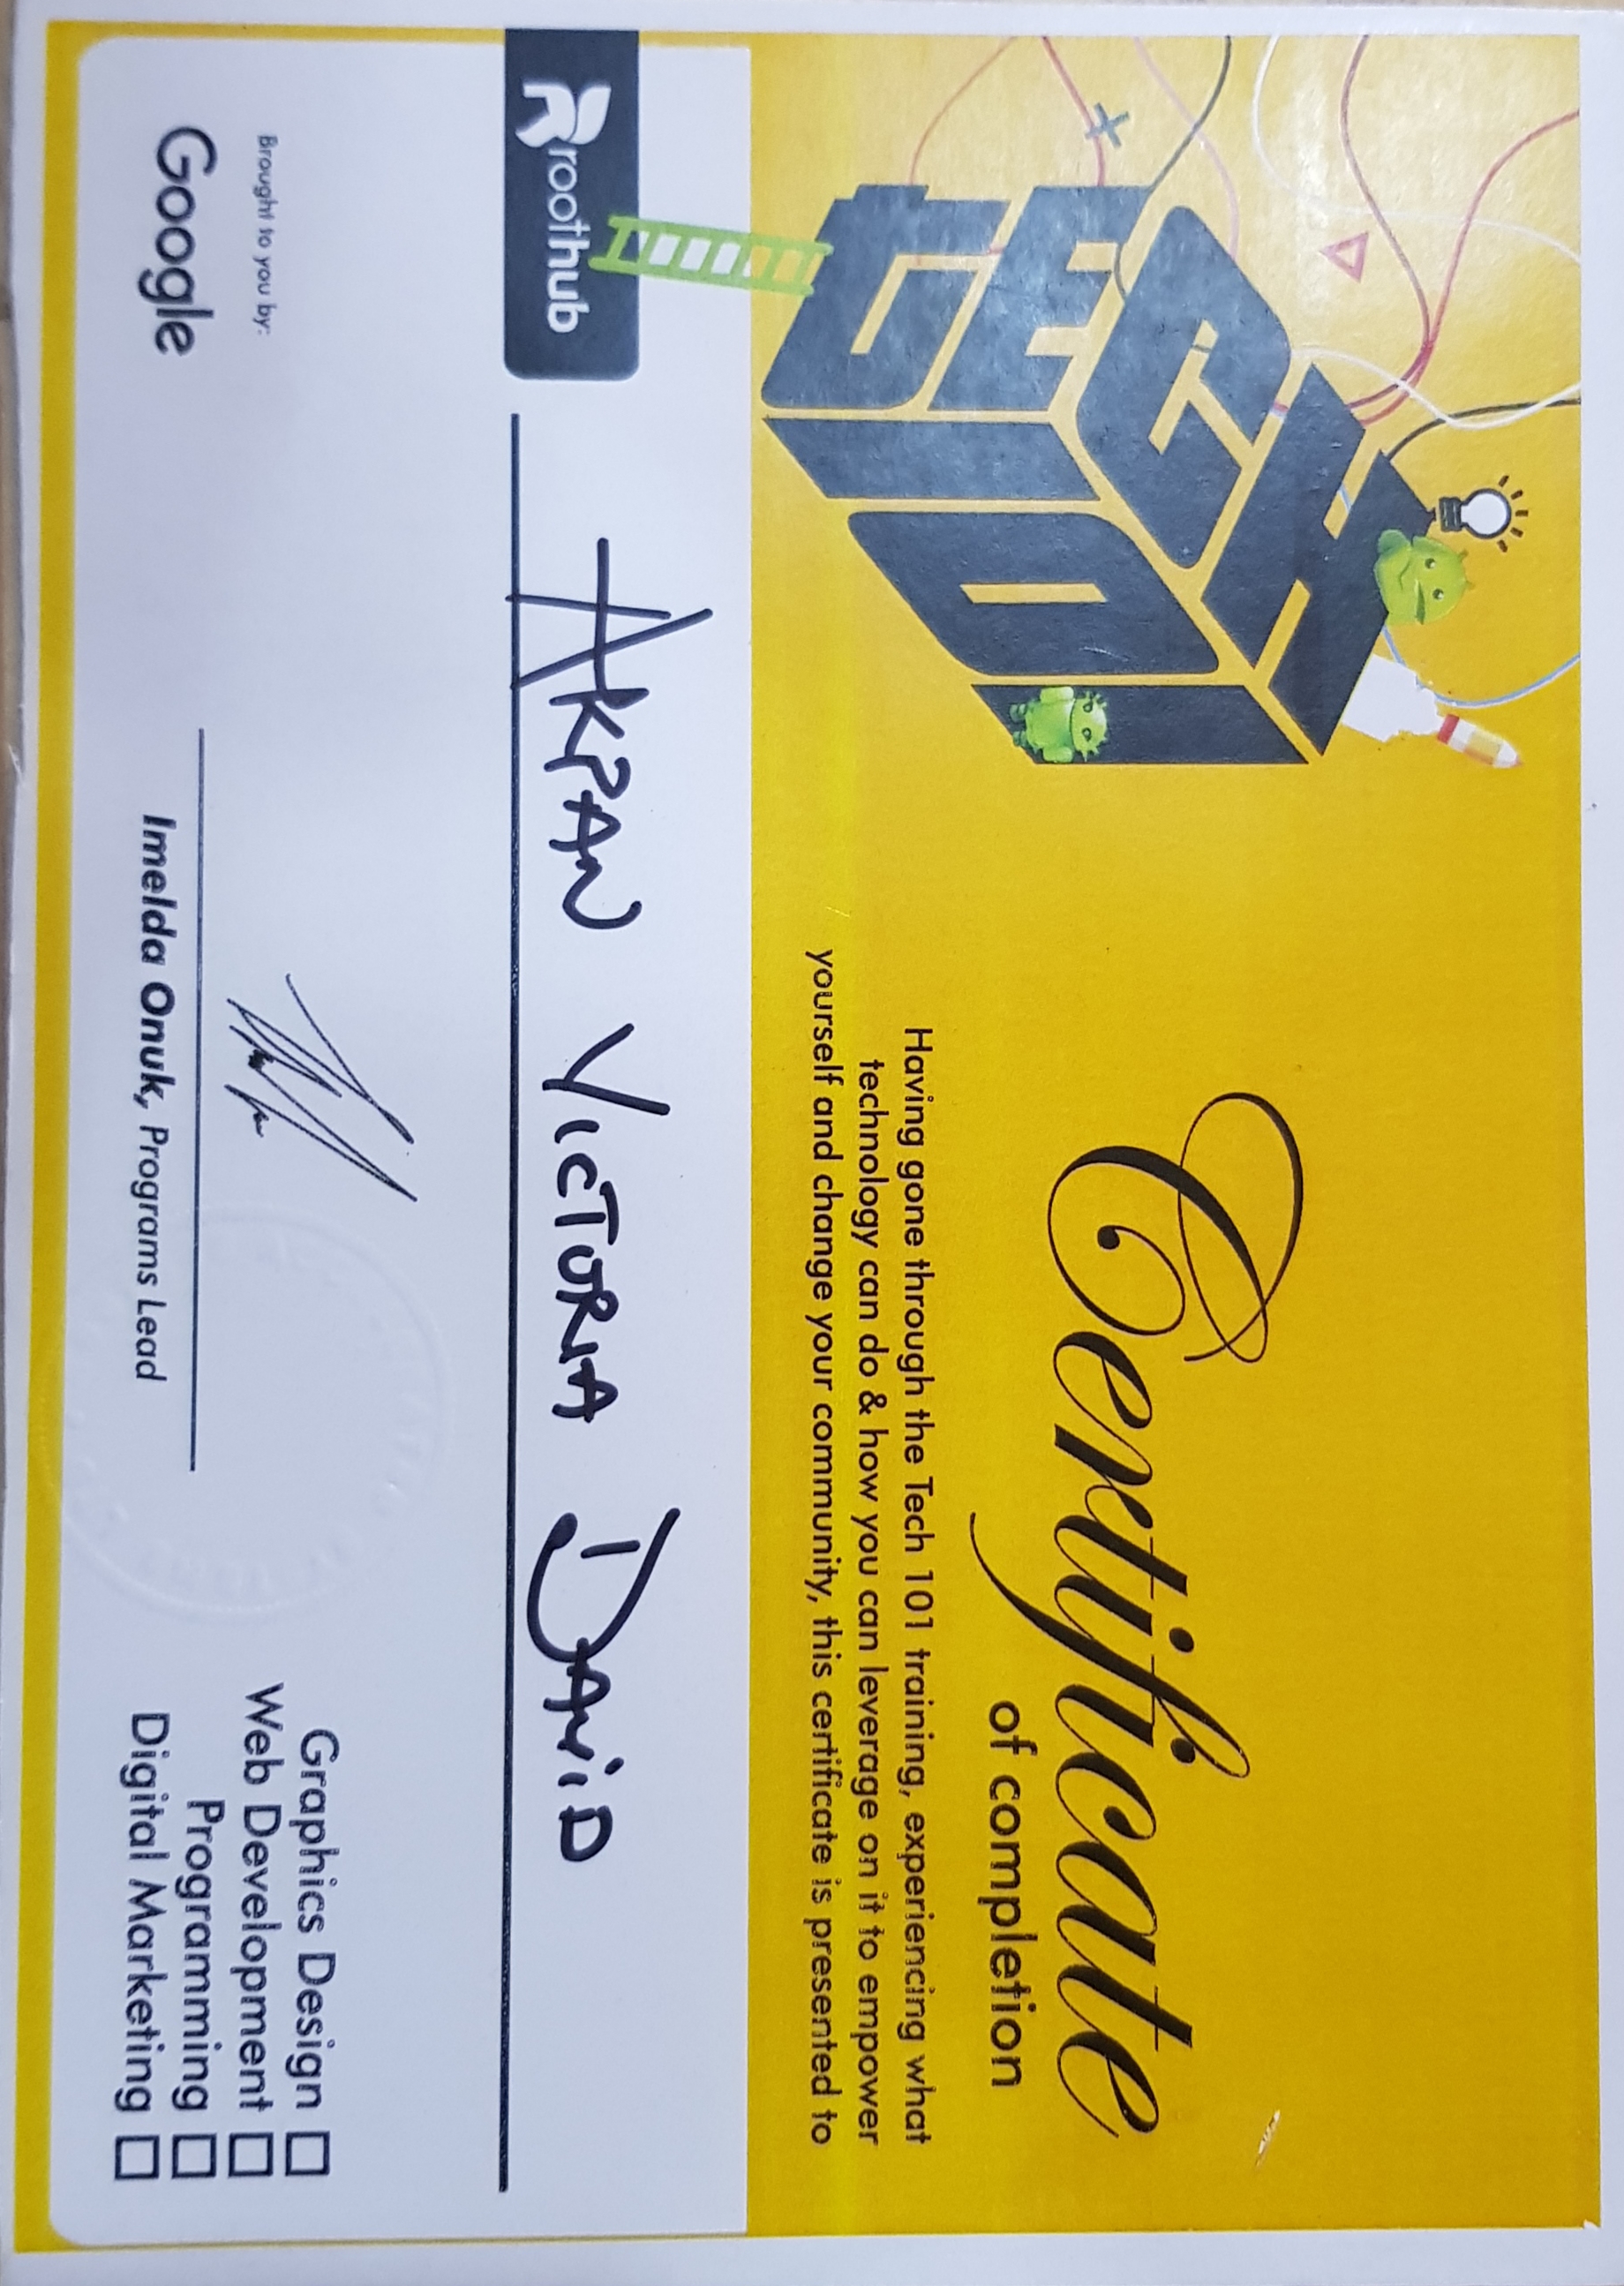 TECH
101
Certificate
of completion
Having gone through the Tech 101 training, experiencing what
technology can do & how you can leverage on it to empower
yourself and change your community, this certificate is presented to
AKPAN VICTORIA DAVID
roothub
Brought to you by:
Google
Imelda Onuk, Programs Lead
Graphics Design
Web Development
Programming
Digital Marketing